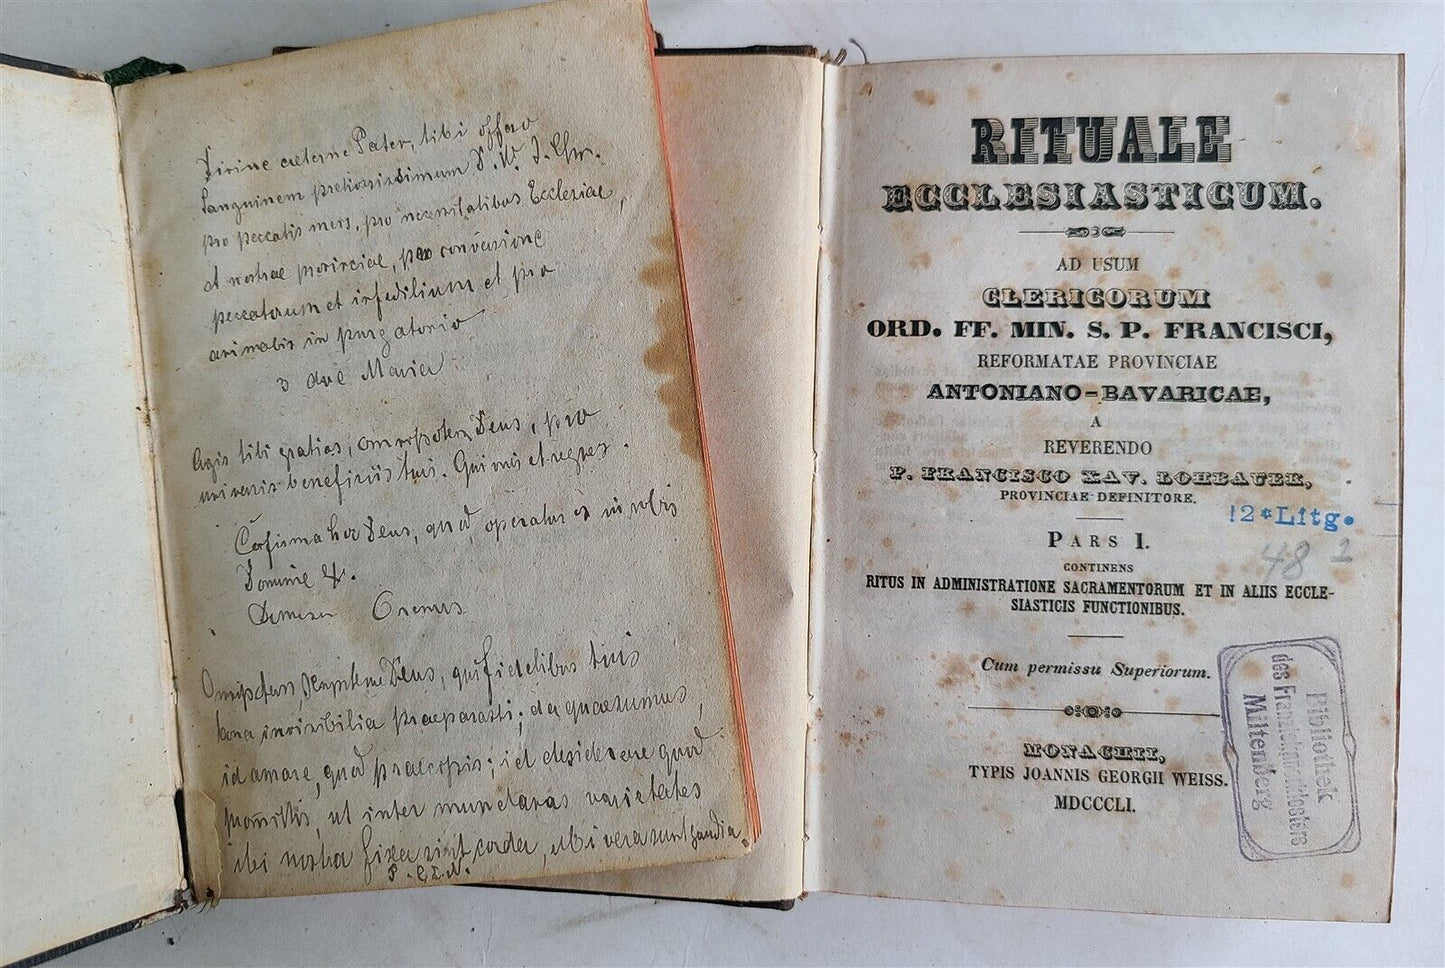 Divine aeterne Pater, tibi offero
Sanguinem pretiosissimum D. N. J. Chr.
pro peccatis meis, pro necessitatibus Ecclesiae,
et nostrae provinciae, pro conversione
peccatorum et infidilium et pro
animabis in purgatorio
3 Ave Maria
Agis tibi gratias, omnipotens Deus, pro
universis beneficiis tuis. Qui vivis et regnas.
Cōfirma hoc Deus, quod operatus es in nobis
Domine
Oremus
Deus, qui fidelibus tuis
bona invisibilia praeparasti; da quaesumus,
id amare, quod praecipis; id desiderare quod
promittis, ut inter mundanas varietates
ibi nostra fixa sint corda, ubi vera sunt gaudia.
RITUALE
ECCLESIASTICUM.
AD USUM
CLERICORUM
ORD. FF. MIN. S. P. FRANCISCI,
REFORMATAE PROVINCIAE
ANTONIANO-BAVARICAE,
A
REVERENDO
P. FRANCISCO XAV. LOHBAUER,
PROVINCIAE DEFINITORE.
12° Litg.
48 1
PARS I.
CONTINENS
RITUS IN ADMINISTRATIONE SACRAMENTORUM ET IN ALIIS ECCLE-
SIASTICIS FUNCTIONIBUS.
Cum permissu Superiorum.
MONACHII,
TYPIS JOANNIS GEORGII WEISS.
MDCCCLI.
Bibliothek
des Franziskanerklosters
Miltenberg